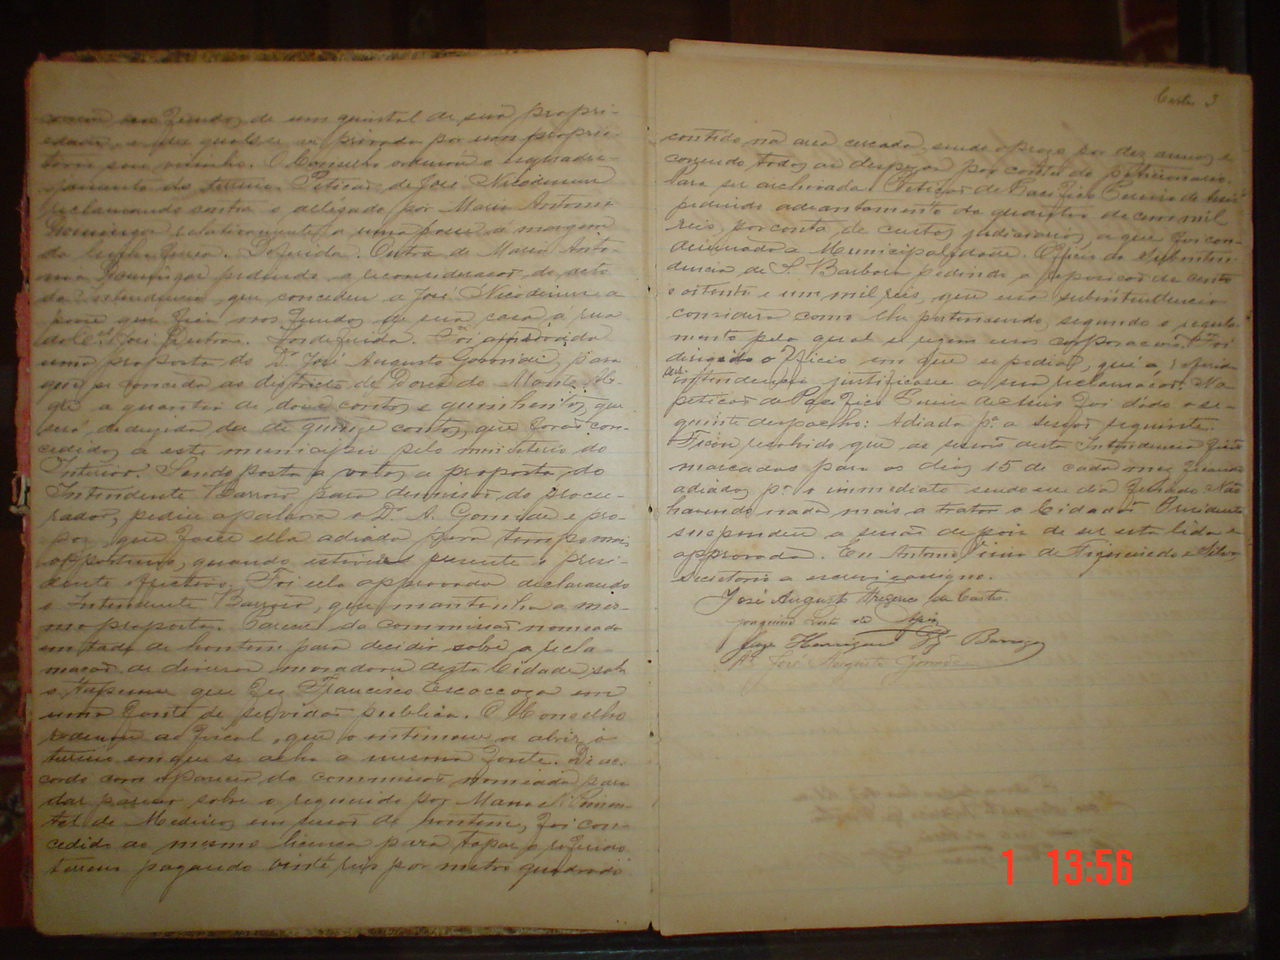 fundos de um quintal de sua propri-
edade, e que qualese privado por um proprie-
tario seu visinho. O Conselho ordenou o
do terreno. Petição de José Nicodemus
reclamando contra o allegado por Maria Antonia
Domingas relativamente a uma posse a margem
da linha ferrea. Deferida. Outra de Maria Anto
nia Domingas pedindo a reconsideração do acto
da Intendencia, que concedeu a José Nicodemus a
posse que fica nos fundos de sua casa a rua
de José Dutra. Indeferida. Foi approvada
uma proposta do Dr. José Augusto Gomide, para
que se conceda ao districto de Dores do Monte Ale-
gre a quantia de dous contos e quinhentos, que
será dedusida da de quinze contos, que forão con-
cedidos a este municipio pelo ministerio do
Interior. Sendo posta a votos a proposta do
Intendente Barroso para demissão do procu-
rador, pediu a palavra o Dr. A. Gomide e pro-
poz que fosse ella adiada para tempo mais
opportuno, quando estivesse presente o presi-
dente effectivo. Foi ella approvada declarando
o Intendente Barroso, que mantinha a mes-
ma proposta. Parecer da commissão nomeada
em data de hontem para decidir sobre a recla-
mação de diversos moradores desta Cidade sobre
o tapume que fez Francisco Escoccoza em
uma fonte de servidão publica. O Conselho
ordenou ao fiscal, que o intimasse a abrir o
terreno em que se acha a mesma fonte. De ac-
cordo com o parecer da commissão nomeada para
dar parecer sobre o requerido por Manoel Pimen-
tel de Medeiros em sessão de hontem, foi con-
cedido ao mesmo licença para tapar o referido
terreno pagando vinte reis por metro quadrado
Castro 3
contido na area cercada, sendo o praso por dez annos e
correndo todas as despezas por conta do peticionario.
Para ser archivada. Petição de Pacifico Pereira de Assis
pedindo adiantamento da quantia de cem mil
reis, por conta de custas judiciarias, a que foi con-
demnada a Municipalidade. Officio da Subinten-
dencia de S. Barbara pedindo a reposição de cento
e oitenta e um mil reis, que essa subintendencia
considera como lhe pertencendo, segundo o regula-
mento pelo qual se regem essas corporações. Foi
dirigido o Officio em que se pedia, que a referida
sub-
intendencia justificasse a sua reclamação. Na
petição de Pacifico Pereira de Assis foi dado o se-
guinte despacho: Adiada pa. a sessão seguinte.
Ficou resolvido que as sessões desta Intendencia fiquem
marcadas para os dias 15 de cada mez, ficando
adiadas pa. o immediato sendo esse dia feriado. Não
havendo nada mais a tratar o Cidadão Presidente
suspendeu a sessão depois de ser esta lida e
approvada. Eu Antonio Pinto de Figueiredo e Silva,
secretario a escrevi e assigno.
José Augusto de Castro
Joaquim
Jorge Henrique Barroso
Dr. José Augusto Gomide
1 13:56